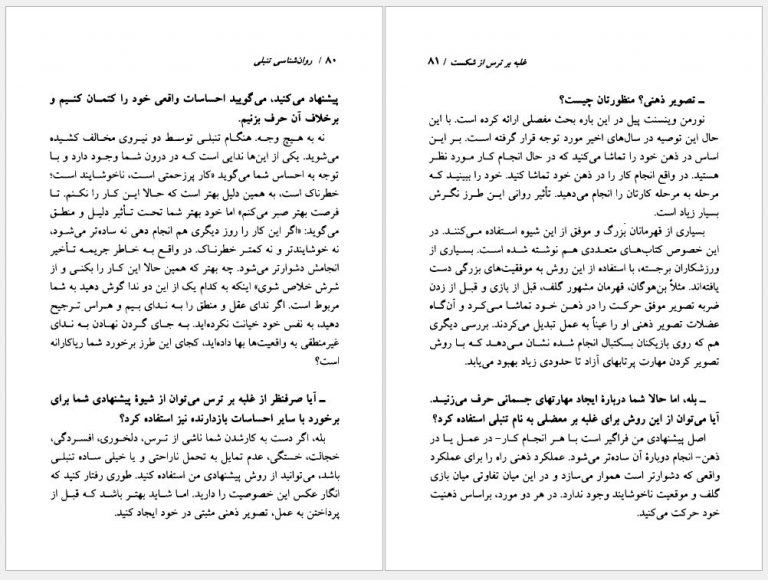 ۸۰ / روان‌شناسی تنبلی
پیشنهاد می‌کنید، می‌گویید احساسات واقعی خود را کتمـان کنـیم و
برخلاف آن حرف بزنیم.
نه به هیچ وجـه. هنگـام تنبلـی توسـط دو نیـروی مخـالف کشـیده
می‌شوید. یکی از این‌ها ندایی است کـه در درون شـما وجـود دارد و بـا
توجه به احساس شما می‌گوید «کار پرزحمتی است، ناخوشـایند است؛
خطرناک است، به همین دلیل بهتر است که حـالا ایـن کـار را نکـنم. تـا
فرصت بهتر صبر می‌کنم» اما خود بهتر شـما تحـت تـأثیر دلیـل و منطـق
می‌گوید: «اگر این کار را روز دیگری هم انجام دهی نه ساده‌تر می‌شود،
نه خوشایندتر و نه کمتـر خطرنـاک. در واقـع بـه خـاطر جریمـه تـأخیر
انجامش دشوارتر می‌شود. چه بهتر که همین حالا این کـار را بکنـی و از
شرش خلاص شوی» اینکه به کدام یـک از این دو نـدا گوش دهید به شـما
مربوط است. اگر ندای عقل و منطق را بـه نـدای بـیم و هـراس ترجیح
دهید، به نفس خود خیانت نکرده‌اید. بـه جـای گـردن نهـادن بـه نـدای
غیرمنطقی به واقعیت‌ها بها داده‌اید، کجای این طرز برخورد شما ریاکارانه
است؟
ــ آیـا صرفنظر از غلبه بر ترس می‌توان از شیوهٔ پیشنهادی شما برای
برخورد با سایر احساسات بازدارنده نیز استفاده کرد؟
بله، اگر دست به کارشدن شما ناشی از تـرس، دلخـوری، افسـردگی،
خجالت، خستگی، عدم تمایل به تحمل ناراحتی و یا خیلی سـاده تنبلـی
باشد، می‌توانید از روش پیشنهادی من استفاده کنید. طوری رفتار کنید که
انگار عکس این خصوصیت را دارید. امـا شـاید بهتـر باشـد کـه قبـل از
پرداختن به عمل، تصویر ذهنی مثبتی در خود ایجاد کنید.
غلبه بر ترس از شکست / ۸۱
ــ تصویر ذهنی؟ منظورتان چیست؟
نورمن وینسنت پیل در این باره بحث مفصلی ارائه کرده است. با این
حال این توصیه در سال‌های اخیر مورد توجه قرار گرفته است. بـر ایـن
اساس در ذهن خود را تماشا می‌کنید که در حال انجـام کـار مـورد نظـر
هستید. در واقع انجام کار را در ذهن خود تماشا کنید. خود را ببینیـد کـه
مرحله به مرحله کارتان را انجام می‌دهید. تأثیر روانی ایـن طـرز نگـرش
بسیار زیاد است.
بسیاری از قهرمانان بزرگ و موفق از این شیوه استفاده مـی‌کننـد. در
این خصوص کتاب‌های متعددی هـم نوشـته شـده اسـت. بسـیاری از
ورزشکاران برجسته، با استفاده از این روش به موفقیت‌های بزرگی دست
یافته‌اند. مثلاً بن‌هوگان، قهرمان مشهور گلف، قبل از بازی و قبـل از زدن
ضربه تصویر موفق حرکـت را در ذهـن خـود تماشـا مـی‌کـرد و آن‌گـاه
عضلات تصویر ذهنی او را عیناً به عمل تبدیل می‌کردند. بررسی دیگری
هم که روی بازیکنان بسکتبال انجام شده نشـان مـی‌دهـد کـه بـا روش
تصویر کردن مهارت پرتابهای آزاد تا حدودی زیاد بهبود می‌یابد.
ــ بله، اما حالا شما دربارهٔ ایجاد مهارتهای جسمانی حرف می‌زنیـد.
آیا می‌توان از این روش برای غلبه بر معضلی به نام تنبلی استفاده کرد؟
اصل پیشنهادی من فراگیر است با هـر انجـام کـار- در عمـل یـا در
ذهن- انجام دوبارهٔ آن ساده‌تر می‌شود. عملکرد ذهنی راه را برای عملکرد
واقعی که دشوارتر است هموار می‌سازد و در این میان تفاوتی میان بازی
گلف و موقعیت ناخوشایند وجود ندارد. در هر دو مورد، براساس ذهنیت
خود حرکت می‌کنید.